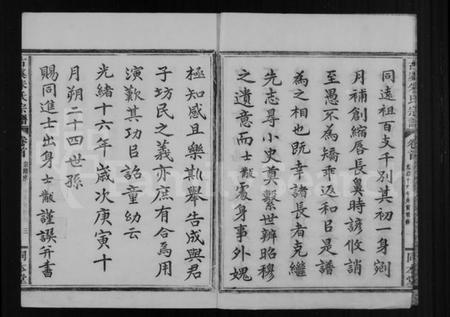 同遠祖百支千別其初一身剜
月補創縮唇長臭時諺攸誚
至愚不為矯乖返和呂是譜
為之相也既幸諸長者克繼
先志尋小史奠繫世辨昭穆
之遺意而士黻處身事外媿
極知感且樂斯舉告成與君
子坊民之義亦庶有合焉用
演歎其功呂詒童幼云
光緒十六年歲次庚寅十
月朔二十四世孫
賜同進士出身士黻謹譔并書
同本堂